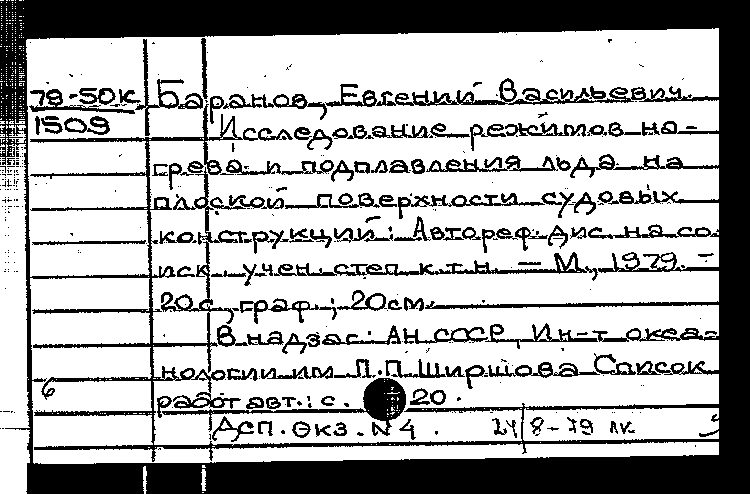 79-50К Баранов, Евгений Васильевич.
1509 Исследование режимов на-
грева и подплавления льда на
плоской поверхности судовых
конструкций: Автореф. дис. на со
иск. учен. степ к.т.н. — М., 1979. -
20с, граф.; 20см.
В надзаг: АН СССР, Ин-т океа-
нологии им П.П Ширшова Список
6 работ авт.: с. 20.
Дсп. Экз. N4. 24 8-79 лк